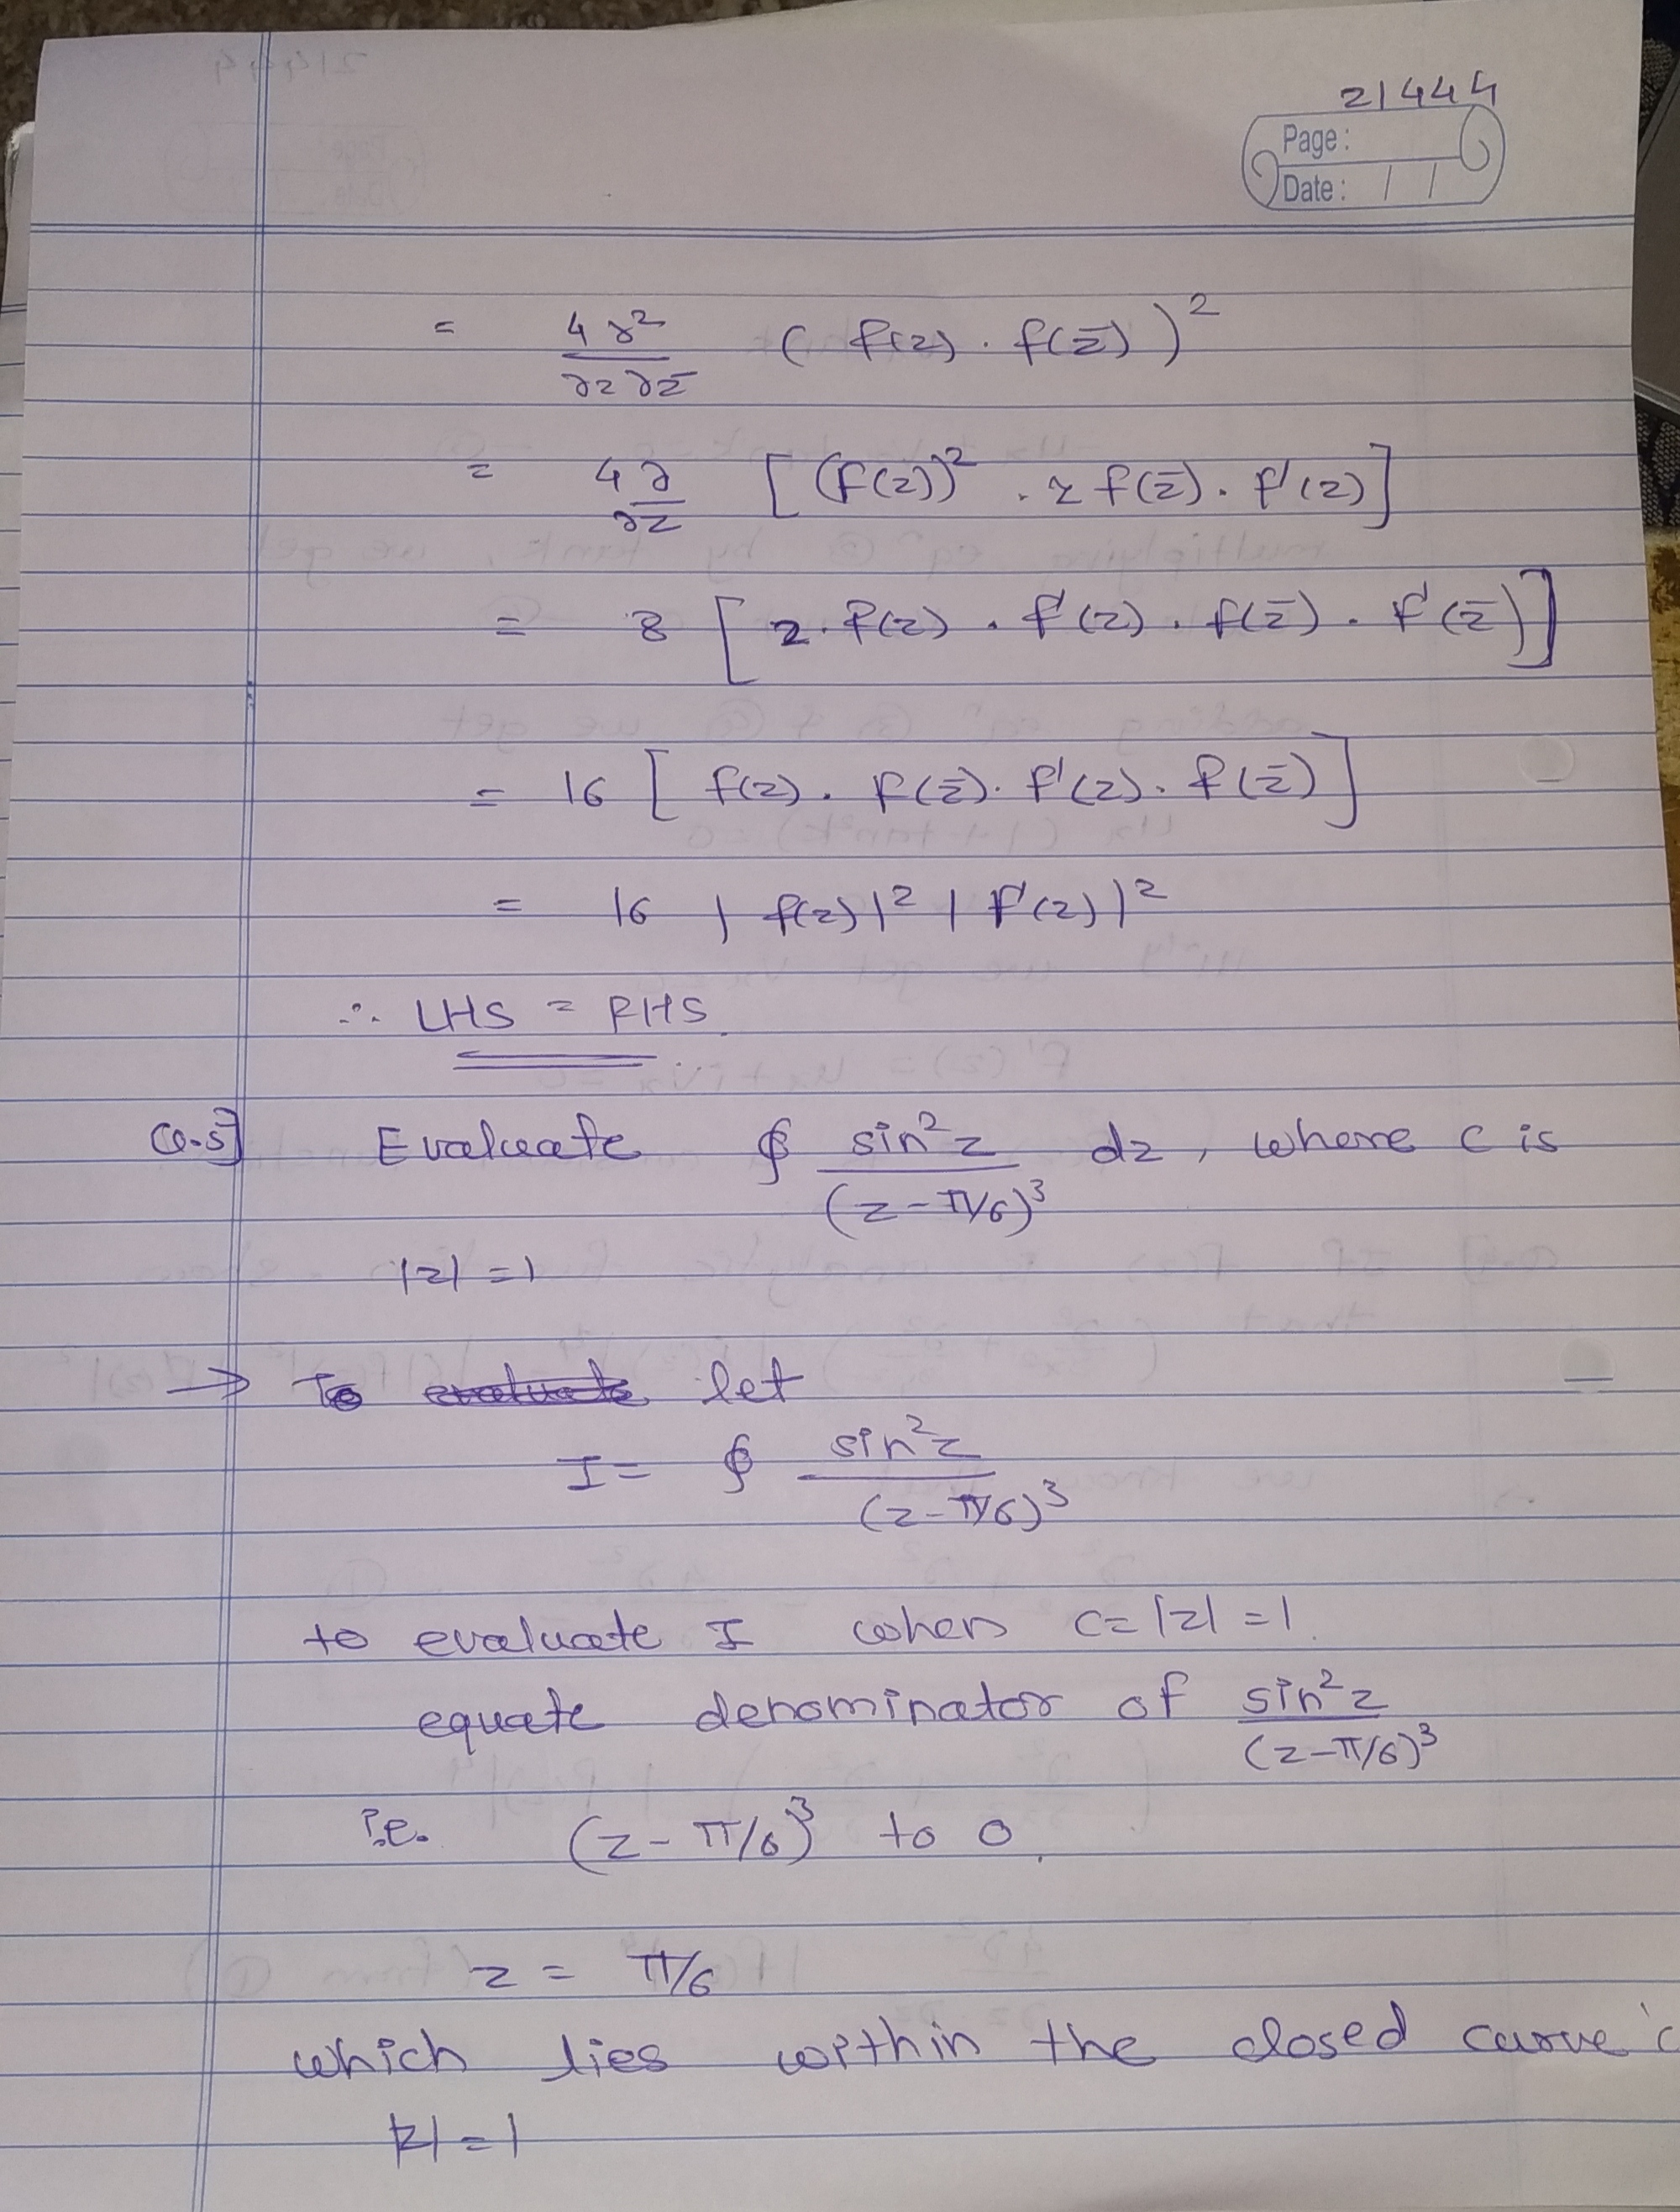 21444
Page :
Date : / /
= 4∂² / ∂z ∂z̄ ( f(z) . f(z̄) )²
= 4∂ / ∂z [ (f(z))² . 2 f(z̄) . f'(z) ]
= 8 [ 2 . f(z) . f'(z) . f(z̄) . f'(z̄) ]
= 16 [ f(z) . f(z̄) . f'(z) . f(z̄) ]
= 16 | f(z) |² | f'(z) |²
∴ LHS = RHS.
Q.5] Evaluate ∮ sin²z / (z - π/6)³ dz , where c is
|z| = 1
→ To evaluate let
I = ∮ sin²z / (z - π/6)³
to evaluate I when c = |z| = 1.
equate denominator of sin²z / (z - π/6)³
i.e. (z - π/6)³ to 0.
z = π/6
which lies within the closed curve 'c
|z| = 1